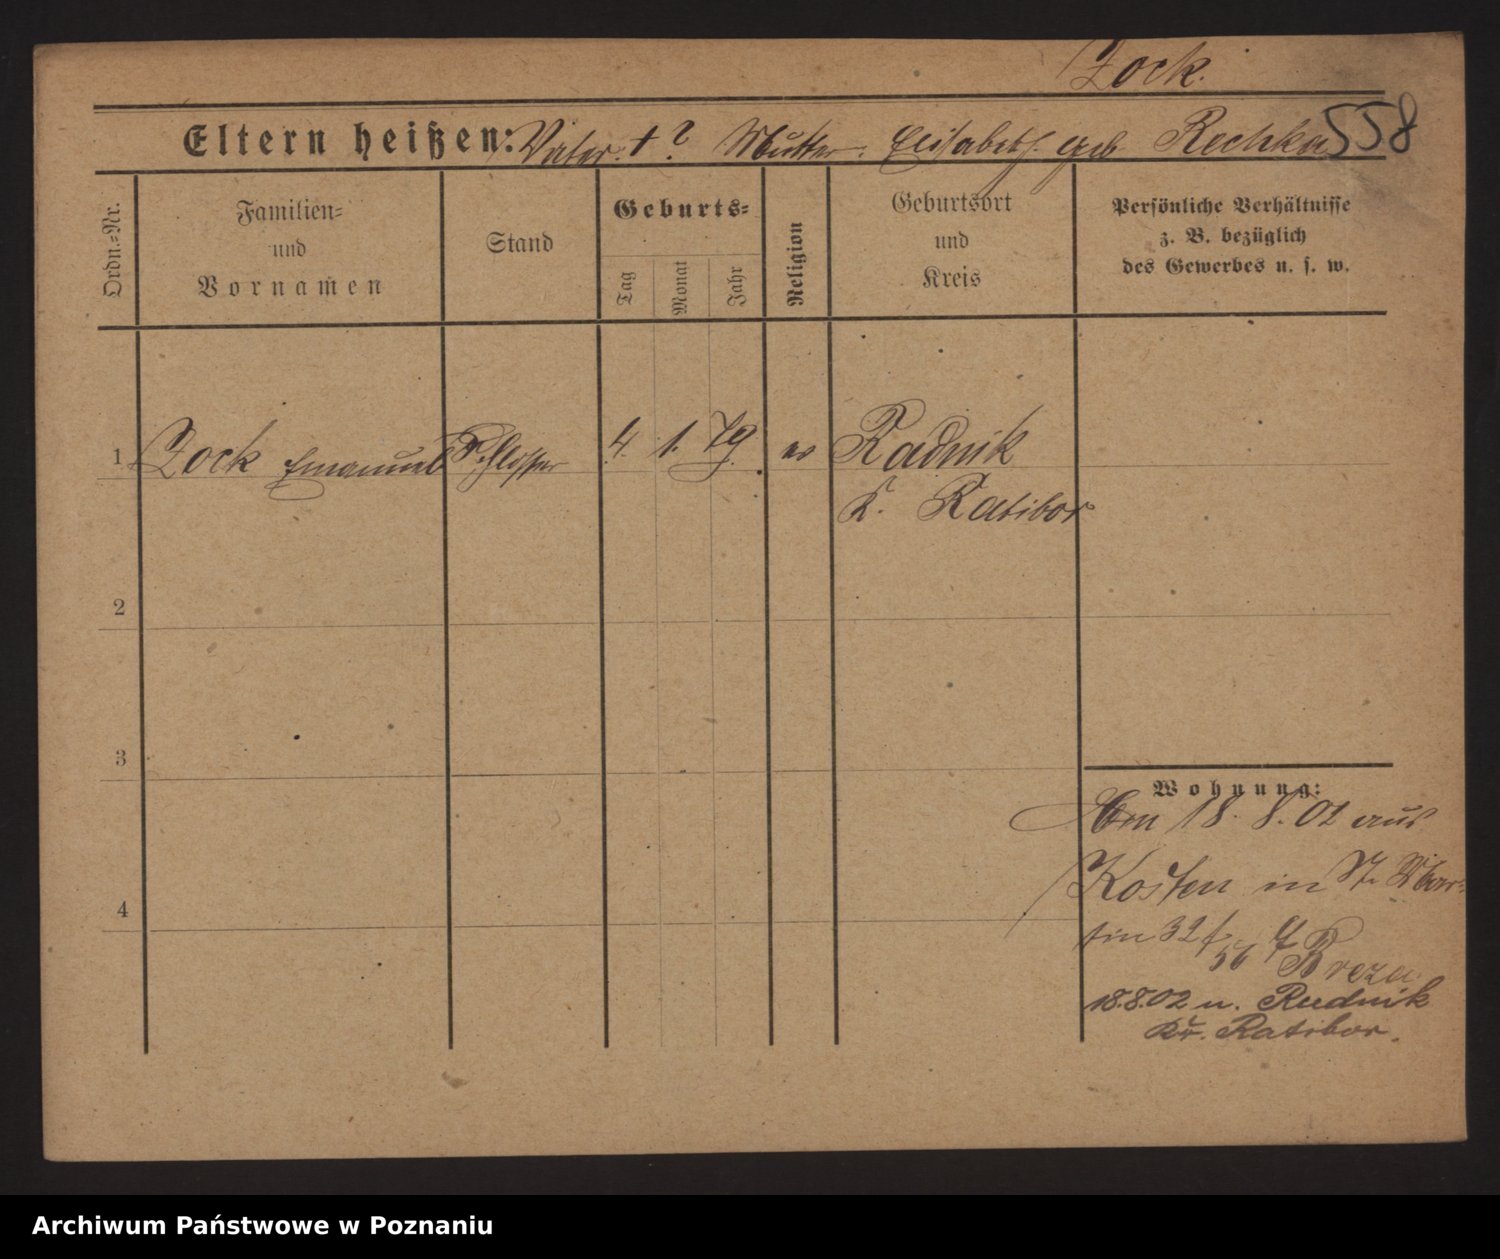 Zock.
558
Eltern heißen: Vater † ? Mutter: Elisabeth geb Rechka
Ordn.=Nr.
Familien=
und
Vornamen
Stand
Geburts=
Tag
Monat
Jahr
Religion
Geburtsort
und
Kreis
Persönliche Verhältnisse
z. B. bezüglich
des Gewerbes u. s. w.
1 Zock Emanuel Schlosser 4. 1. 79. ev Radnik
K. Ratibor
2
3
4
Wohnung:
Am 18. 8. 02 aus
Kosten in St. Mar=
tin 32 f
56 Breza
18.8.02 n. Rudnik
Kr. Ratibor.
Archiwum Państwowe w Poznaniu